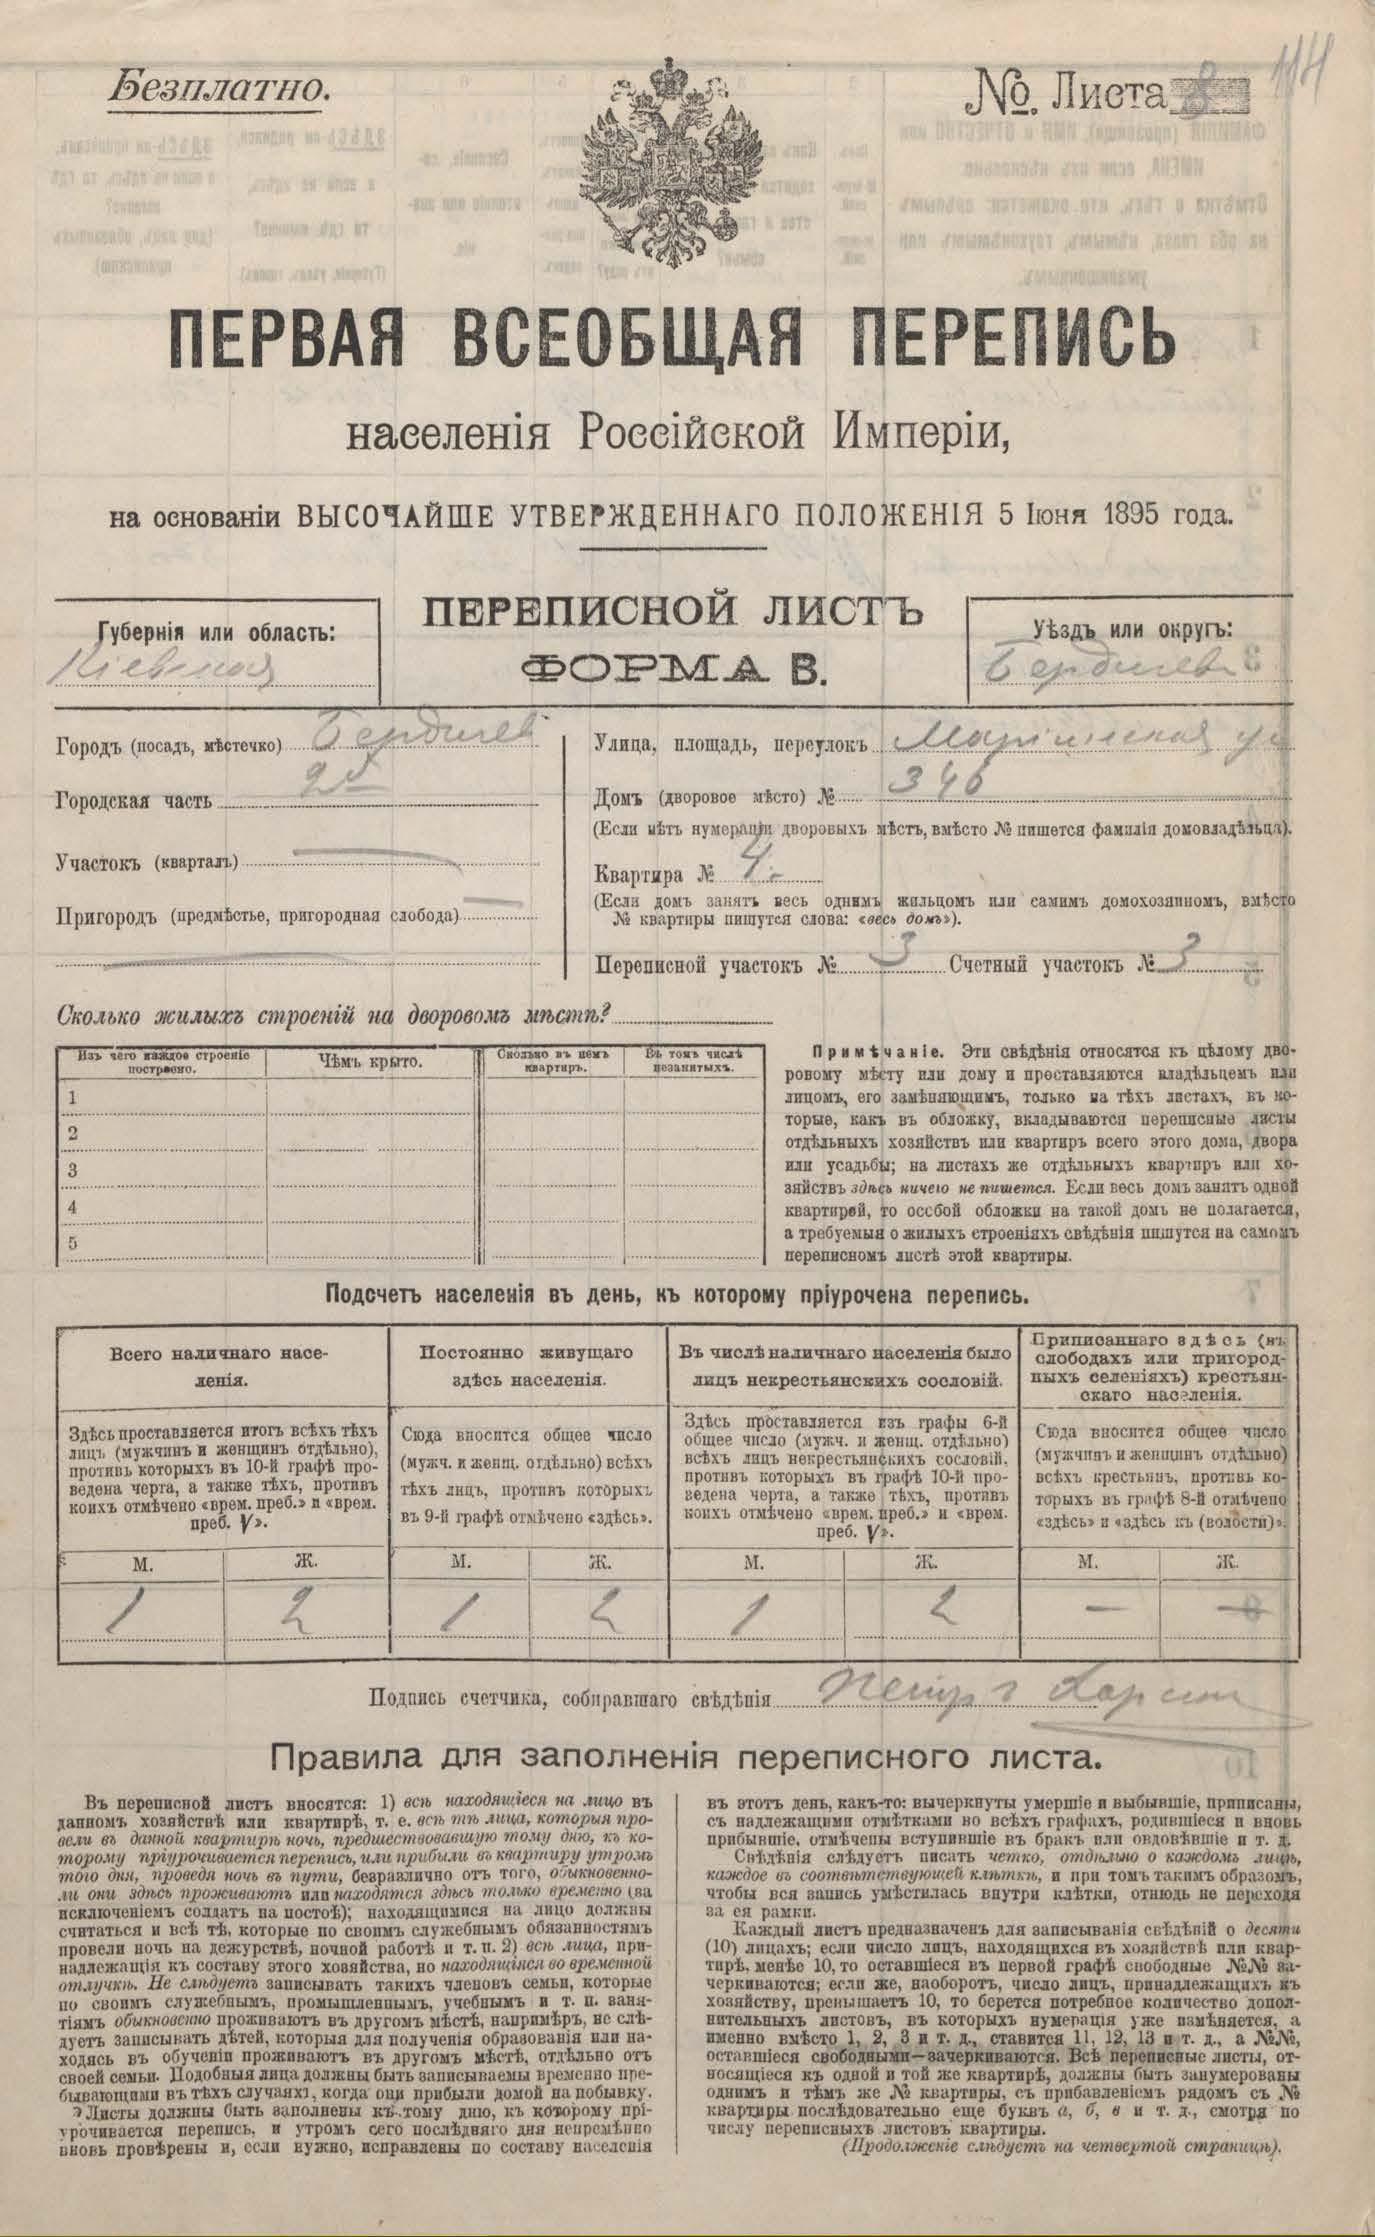 Безплатно.
№. Листа 8
114
ПЕРВАЯ ВСЕОБЩАЯ ПЕРЕПИСЬ
населенія Россійской Имперіи,
на основаніи ВЫСОЧАЙШЕ УТВЕРЖДЕННАГО ПОЛОЖЕНІЯ 5 Іюня 1895 года.
ПЕРЕПИСНОЙ ЛИСТЪ
ФОРМА В.
Губернія или область:
Кіевская
Уѣздъ или округъ:
Бердичев
Городъ (посадъ, мѣстечко) Бердичев
Городская часть 2я
Участокъ (кварталъ)
Пригородъ (предмѣстье, пригородная слобода)
Улица, площадь, переулокъ Маріинская ул
Домъ (дворовое мѣсто) № 346
(Если нѣтъ нумераціи дворовыхъ мѣстъ, вмѣсто № пишется фамилія домовладѣльца).
Квартира № 4.
(Если домъ занятъ весь однимъ жильцомъ или самимъ домохозяиномъ, вмѣсто
№ квартиры пишутся слова: «весь домъ»).
Переписной участокъ № 3 Счетный участокъ № 3
Сколько жилыхъ строеній на дворовомъ мѣстѣ?
Изъ чего каждое строеніе
построено.
Чѣмъ крыто.
Сколько въ немъ
квартиръ.
Въ томъ числѣ
незанятыхъ.
1
2
3
4
5
Примѣчаніе. Эти свѣдѣнія относятся къ цѣлому дво-
ровому мѣсту или дому и проставляются владѣльцемъ или
лицомъ, его замѣняющимъ, только на тѣхъ листахъ, въ ко-
торые, какъ въ обложку, вкладываются переписные листы
отдѣльныхъ хозяйствъ или квартиръ всего этого дома, двора
или усадьбы; на листахъ же отдѣльныхъ квартиръ или хо-
зяйствъ здѣсь ничего не пишется. Если весь домъ занятъ одной
квартирой, то особой обложки на такой домъ не полагается,
а требуемыя о жилыхъ строеніяхъ свѣдѣнія пишутся на самомъ
переписномъ листѣ этой квартиры.
Подсчетъ населенія въ день, къ которому пріурочена перепись.
Всего наличнаго насе-
ленія.
Здѣсь проставляется итогъ всѣхъ тѣхъ
лицъ (мужчинъ и женщинъ отдѣльно),
противъ которыхъ въ 10-й графѣ про-
ведена черта, а также тѣхъ, противъ
коихъ отмѣчено «врем. преб.» и «врем.
преб. V».
Постоянно живущаго
здѣсь населенія.
Сюда вносится общее число
(мужч. и женщ. отдѣльно) всѣхъ
тѣхъ лицъ, противъ которыхъ
въ 9-й графѣ отмѣчено «здѣсь».
Въ числѣ наличнаго населенія было
лицъ некрестьянскихъ сословій.
Здѣсь проставляется изъ графы 6-й
общее число (мужч. и женщ. отдѣльно)
всѣхъ лицъ некрестьянскихъ сословій,
противъ которыхъ въ графѣ 10-й про-
ведена черта, а также тѣхъ, противъ
коихъ отмѣчено «врем. преб.» и «врем.
преб. V».
Приписаннаго здѣсь (въ
слободахъ или пригород-
ныхъ селеніяхъ) крестьян-
скаго населенія.
Сюда вносится общее число
(мужчинъ и женщинъ отдѣльно)
всѣхъ крестьянъ, противъ ко-
торыхъ въ графѣ 8-й отмѣчено
«здѣсь» и «здѣсь къ (волости)».
М. Ж. М. Ж. М. Ж. М. Ж.
1 2 1 2 1 2 — —
Подпись счетчика, собиравшаго свѣдѣнія Петръ
Правила для заполненія переписного листа.
Въ переписной листъ вносятся: 1) всѣ находящіеся на лицо въ
данномъ хозяйствѣ или квартирѣ, т. е. всѣ тѣ лица, которыя про-
вели въ данной квартирѣ ночь, предшествовавшую тому дню, къ ко-
торому пріурочивается перепись, или прибыли въ квартиру утромъ
того дня, проведя ночь въ пути, безразлично отъ того, обыкновенно-
ли они здѣсь проживаютъ или находятся здѣсь только временно (за
исключеніемъ солдатъ на постоѣ); находящимися на лицо должны
считаться и всѣ тѣ, которые по своимъ служебнымъ обязанностямъ
провели ночь на дежурствѣ, ночной работѣ и т. п. 2) всѣ лица, при-
надлежащія къ составу этого хозяйства, но находящіяся во временной
отлучкѣ. Не слѣдуетъ записывать такихъ членовъ семьи, которые
по своимъ служебнымъ, промышленнымъ, учебнымъ и т. п. заня-
тіямъ обыкновенно проживаютъ въ другомъ мѣстѣ, напримѣръ, не слѣ-
дуетъ записывать дѣтей, которыя для полученія образованія или на-
ходясь въ обученіи проживаютъ въ другомъ мѣстѣ, отдѣльно отъ
своей семьи. Подобныя лица должны быть записываемы временно пре-
бывающими въ тѣхъ случаяхъ, когда они прибыли домой на побывку.
Листы должны быть заполнены къ тому дню, къ которому прі-
урочивается перепись, и утромъ сего послѣдняго дня непремѣнно
вновь провѣрены и, если нужно, исправлены по составу населенія
въ этотъ день, какъ-то: вычеркнуты умершіе и выбывшіе, приписаны,
съ надлежащими отмѣтками во всѣхъ графахъ, родившіеся и вновь
прибывшіе, отмѣчены вступившіе въ бракъ или овдовѣвшіе и т. д.
Свѣдѣнія слѣдуетъ писать четко, отдѣльно о каждомъ лицѣ,
каждое въ соотвѣтствующей клѣткѣ, и при томъ такимъ образомъ,
чтобы вся запись умѣстилась внутри клѣтки, отнюдь не переходя
за ея рамки.
Каждый листъ предназначенъ для записыванія свѣдѣній о десяти
(10) лицахъ; если число лицъ, находящихся въ хозяйствѣ или квар-
тирѣ, менѣе 10, то оставшіеся въ первой графѣ свободные №№ за-
черкиваются; если же, наоборотъ, число лицъ, принадлежащихъ къ
хозяйству, превышаетъ 10, то берется потребное количество допол-
нительныхъ листовъ, въ которыхъ нумерація уже измѣняется, а
именно вмѣсто 1, 2, 3 и т. д., ставится 11, 12, 13 и т. д., а №№,
оставшіеся свободными—зачеркиваются. Всѣ переписные листы, от-
носящіеся къ одной и той же квартирѣ, должны быть занумерованы
однимъ и тѣмъ же № квартиры, съ прибавленіемъ рядомъ съ №
квартиры послѣдовательно еще буквъ а, б, в и т. д., смотря по
числу переписныхъ листовъ квартиры.
(Продолженіе слѣдуетъ на четвертой страницѣ).